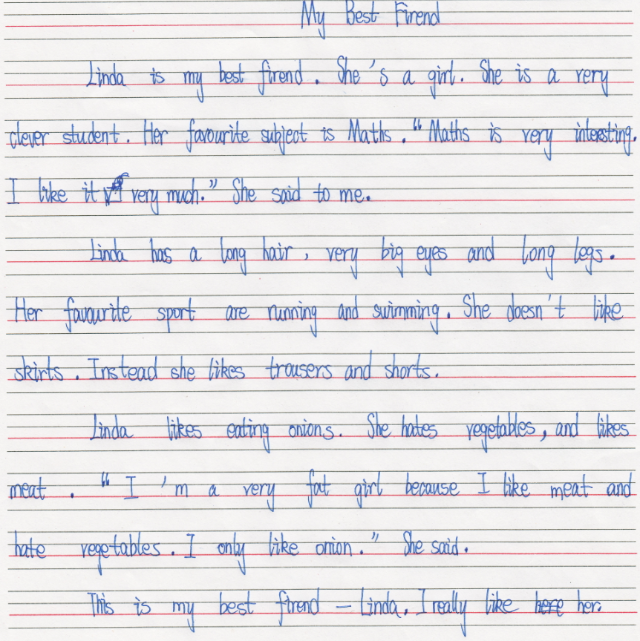 My Best Firend
Linda is my best firend. She's a girl. She is a very
clever student. Her favourite subject is Maths. "Maths is very interesting.
I like it very much." She said to me.
Linda has a long hair, very big eyes and long legs.
Her favourite sport are running and swimming. She doesn't like
skirts. Instead she likes trousers and shorts.
Linda likes eating onions. She hates vegetables, and likes
meat. "I'm a very fat girl because I like meat and
hate vegetables. I only like onion." She said.
This is my best firend — Linda. I really like here her.